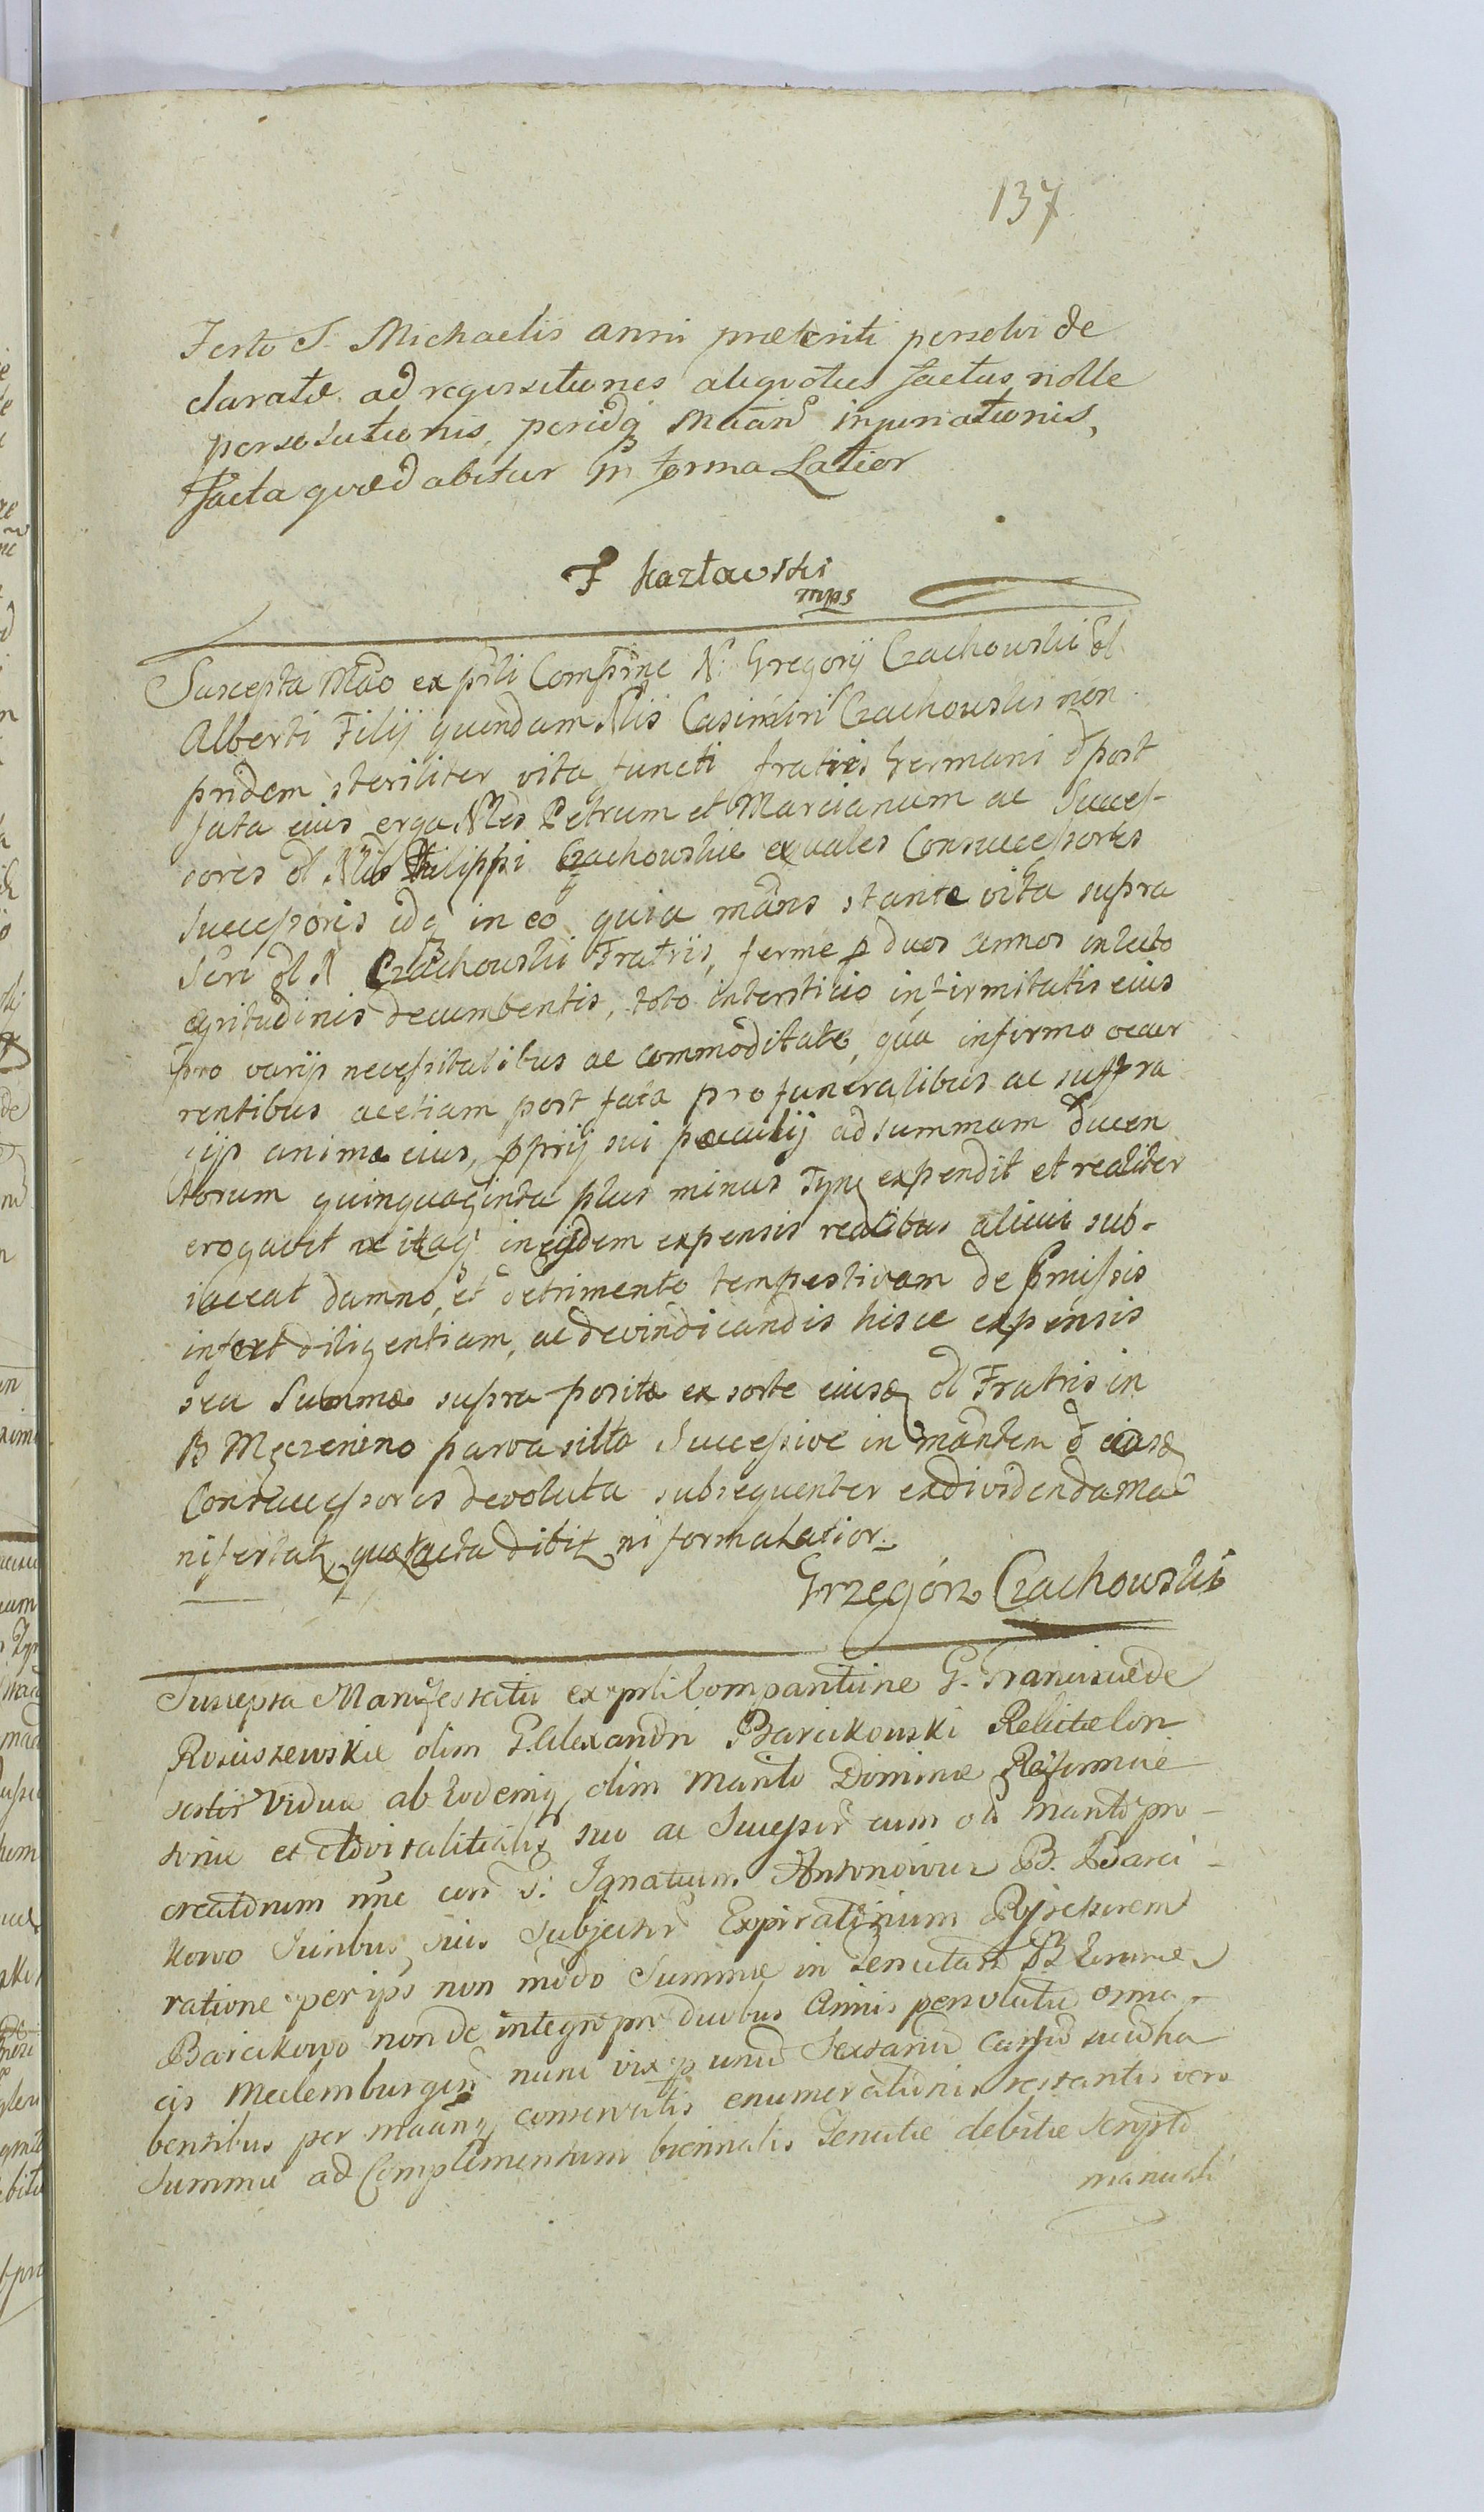 137
Festo S. Michaelis anni præteriti persolvi de
claratæ ad requisitiones aliquoties factas nolle
persolutionis, peridq injuriationis,
facta quæ dabitur in forma Latior
F Kazławski
mps
Suscepta Mão ex prli Compñe N: Gregorij Czachowski ol
Alberti Filij quondam Nlis Casimiri Czachowski non
pridem steriliter vita functi fratris Germani post
fata eius erga Nles Petrum et Marcianum ac Succes-
sores ol Nlis Philippi Czachowskie equales Consuccessores
Successoris idq in eo quia mãns stante vita supra
Scri ol N Czachowski Fratris, ferme p duos annos in lecto
egritudinis decumbentis, toto interstitio infirmitatis eius
pro varijs necessitatibus ac commoditate, qua infirmo occur
rentibus ac etiam post fata pro funeralibus ac suffra
gijs animæ eius, pprij sui peculij ad summam ducen
torum quinquaginta plus minus Tyn expendit et realiter
erogavit ne itaq in eijdem expensis realibus alicui sub-
iaceat damno, et detrimento tempestivam de pmissis
infert diligentiam, ac de vindicandis hisce expensis
seu Summæ supra positæ ex sorte eiusd ol Fratris in
B Męczenino parva sitta Successive in mãntem
Consuccessores devoluta subsequenter exdividenda ma
nifestatq quæ facta dibit ni forma latior
Grzegórz Czachowski
Suscepta Manifestatio ex prli Comparitione G. Franciscæ de
Rościszewskie olim G. Alexandri Barcikowski Relictæ Con
sortis Viduæ ab Eodemq olim Marito Dominæ Reforma
toriæ et Advitalitialis suo ac Successor cum ol Marito pro-
creatorum nõe con G: Ignatium Antonowicz B. Barci-
kowo Iuribus suis Subjector Expirativum
ratione per ips non modo Summæ in Tenutam B Terrenæ
Barcikowo non de integro pro duobus Annis persolutæ
cis Meclemburgen nunc vix p unum Sextanium Cursum suum ha
bentibus per conservatis enumerationis restantis vero
Summæ ad Complementum biennalis Tenutæ debitæ Scripto
manuali